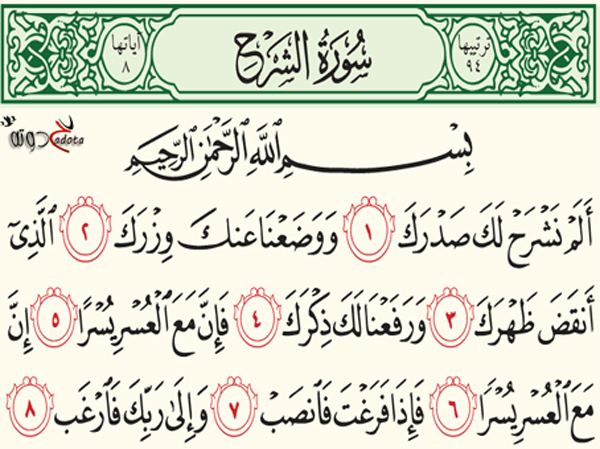 ترتيبها ٩٤ سُورَةُ الشَّرْحِ آياتها ٨
حدوته hadota
بِسْمِ اللَّهِ الرَّحْمَٰنِ الرَّحِيمِ
أَلَمْ نَشْرَحْ لَكَ صَدْرَكَ ١ وَوَضَعْنَا عَنكَ وِزْرَكَ ٢ ٱلَّذِىٓ
أَنقَضَ ظَهْرَكَ ٣ وَرَفَعْنَا لَكَ ذِكْرَكَ ٤ فَإِنَّ مَعَ ٱلْعُسْرِ يُسْرًا ٥ إِنَّ
مَعَ ٱلْعُسْرِ يُسْرًا ٦ فَإِذَا فَرَغْتَ فَٱنصَبْ ٧ وَإِلَىٰ رَبِّكَ فَٱرْغَب ٨